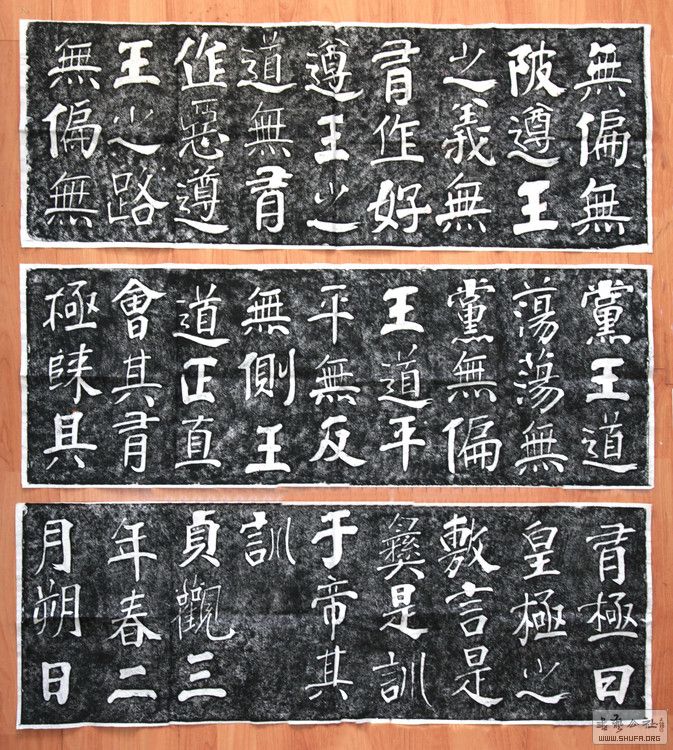 無偏無
陂遵王
之義無
有作好
遵王之
道無有
作惡遵
王之路
無偏無
黨王道
蕩蕩無
黨無偏
王道平
平無反
無側王
道正直
會其有
極歸其
有極曰
皇極之
敷言是
彝是訓
于帝其
訓
貞觀三
年春二
月朔日
書藝公社
WWW.SHUFA.ORG